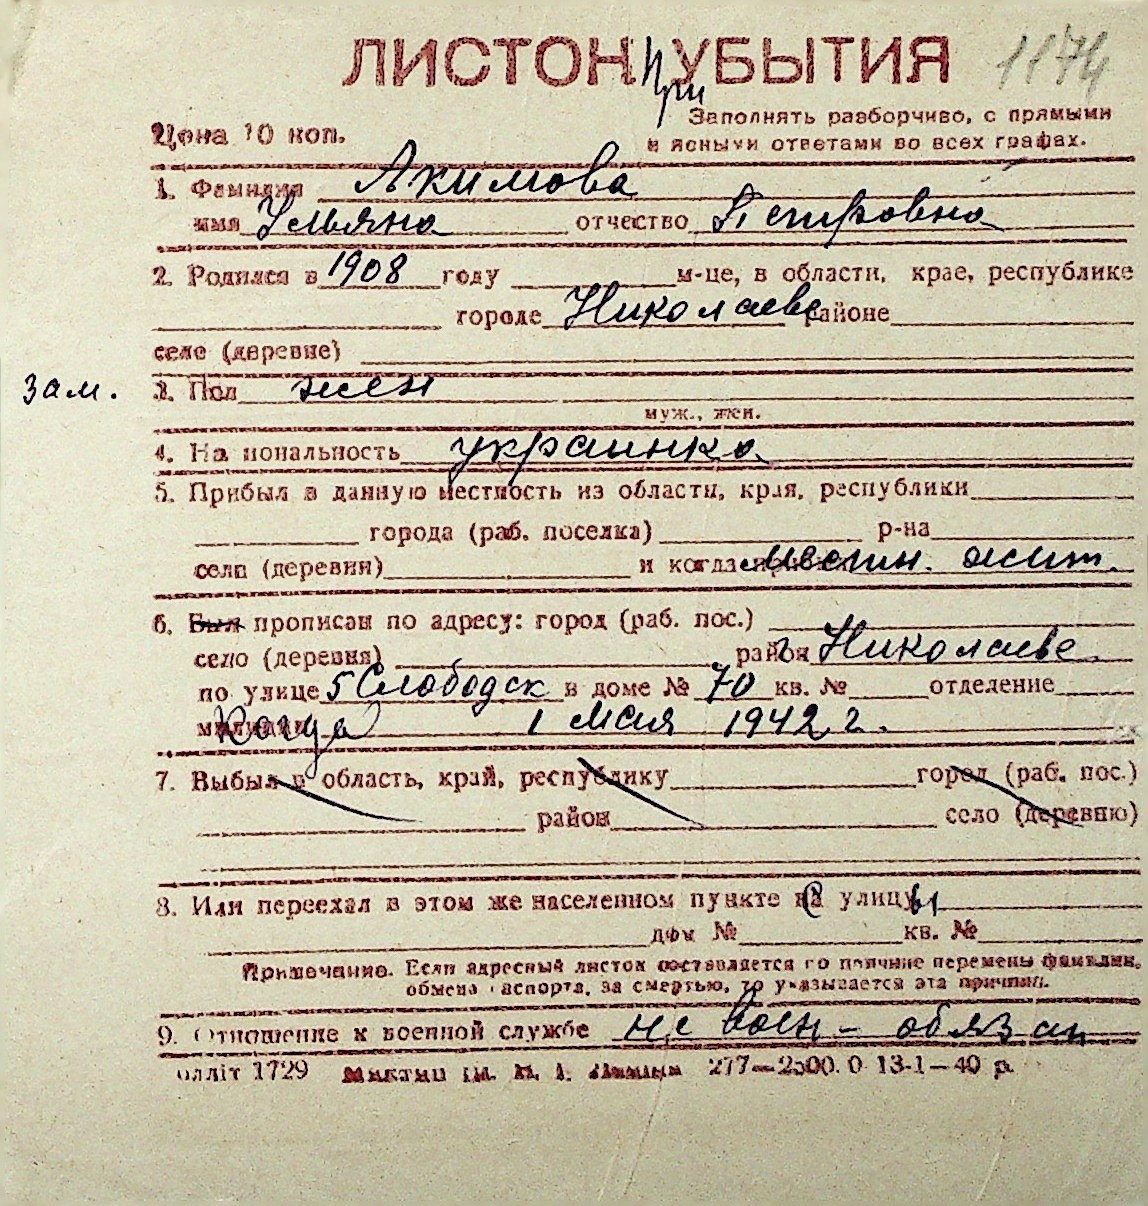 1174
ЛИСТОК При УБЫТИЯ
Цена 10 коп.
Заполнять разборчиво, с прямыми
и ясными ответами во всех графах.
1. Фамилия Акимова
имя Ульяна отчество Петровна
2. Родился в 1908 году м-це, в области, крае, республике
городе Николаеве районе
селе (деревне)
зам. 3. Пол жен
муж., жен.
4. Национальность украинка
5. Прибыл в данную местность из области, края, республики
города (раб. поселка) р-на
села (деревни) и когда местн. жит.
6. Был прописан по адресу: город (раб. пос.)
село (деревня) район г. Николаеве
по улице 5 Слободск в доме № 70 кв. № отделение
милиции Когда 1 мая 1942 г.
7. Выбыл в область, край, республику город (раб. пос.)
район село (деревню)
8. Или переехал в этом же населенном пункте с улицы
дом № кв. №
Примечание. Если адресный листок составляется по причине перемены фамилии,
обмена паспорта, за смертью, то указывается эта причина.
9. Отношение к военной службе не воен-обязан
олліт 1729 277—2500. 0 13-1—40 р.